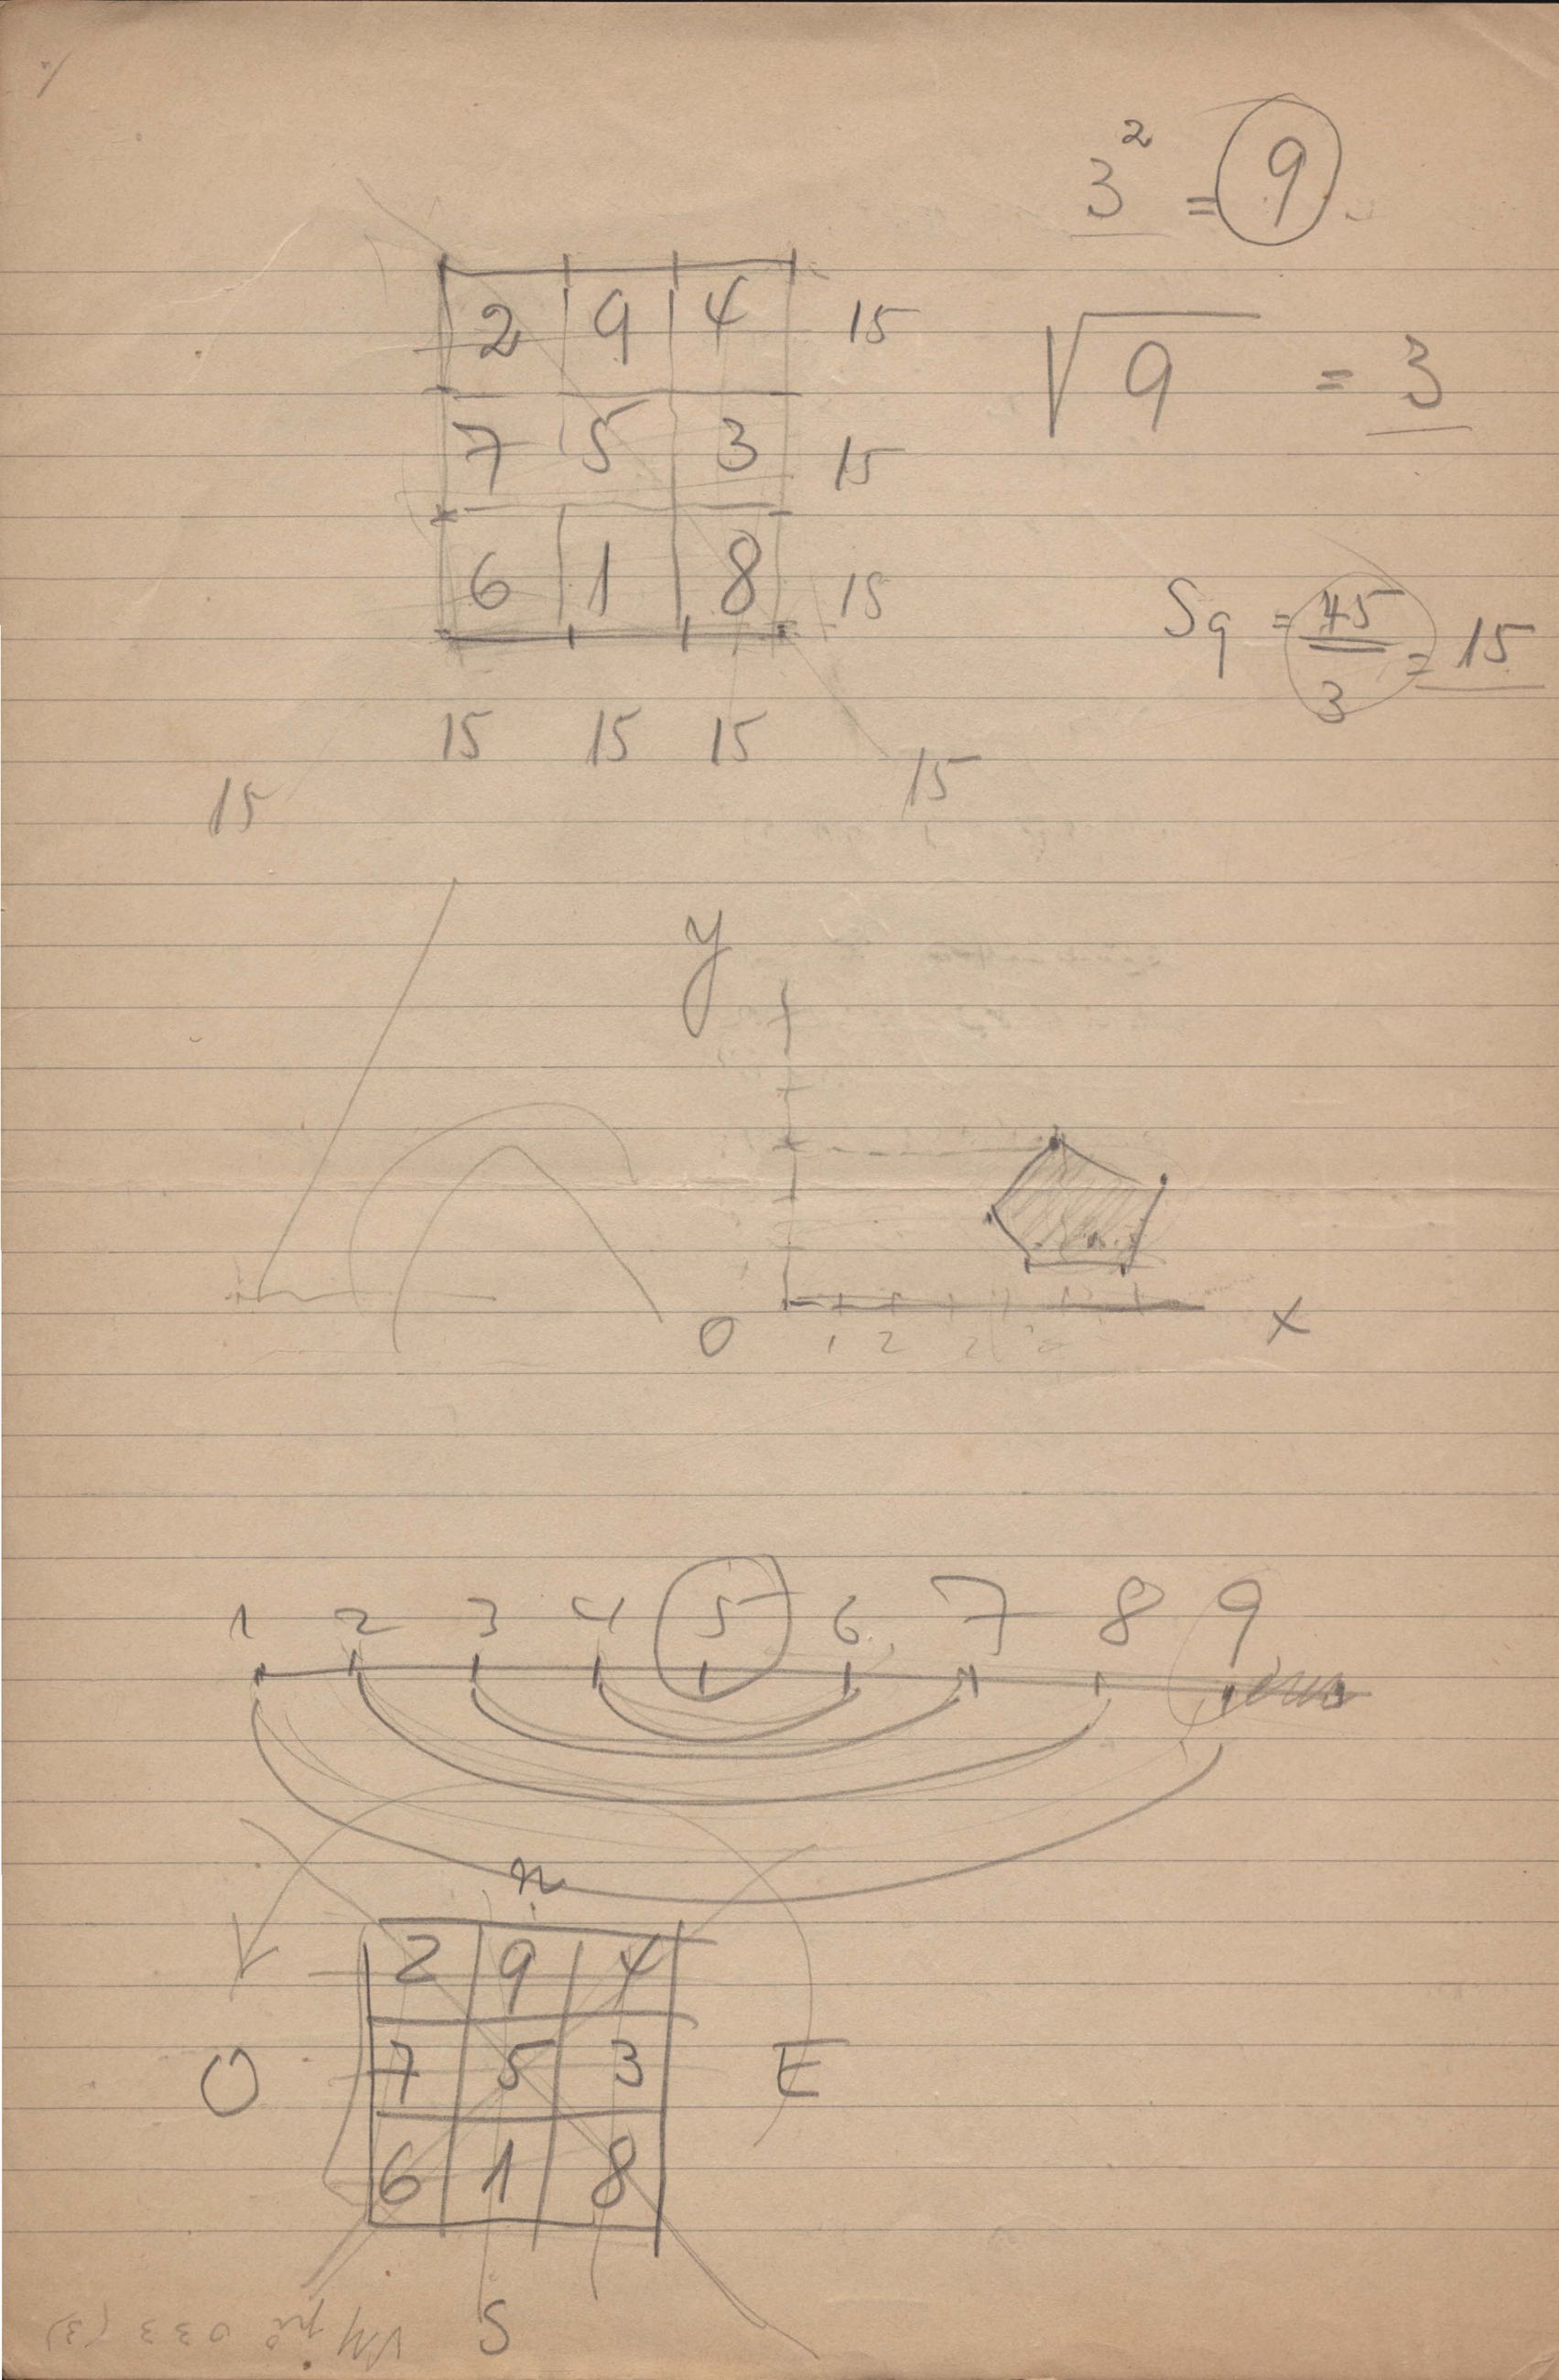 3² = 9
2 9 4 15
√9 = 3
7 5 3 15
6 1 8 15
S9 = 45/3 = 15
15 15 15
15 15
y
O x
1 2
1 2 3 4 5 6 7 8 9
n
2 9 4
O 7 5 3 E
6 1 8
S
033 (3)